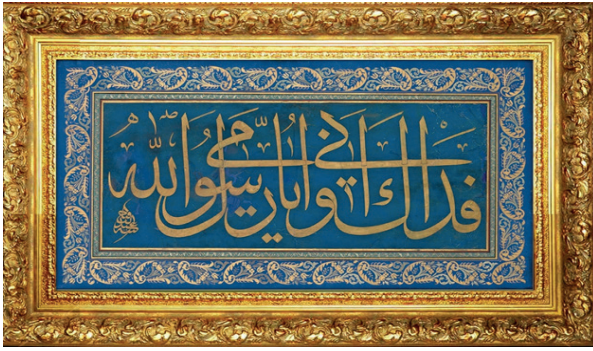 فداك ابى وامى يا رسول الله